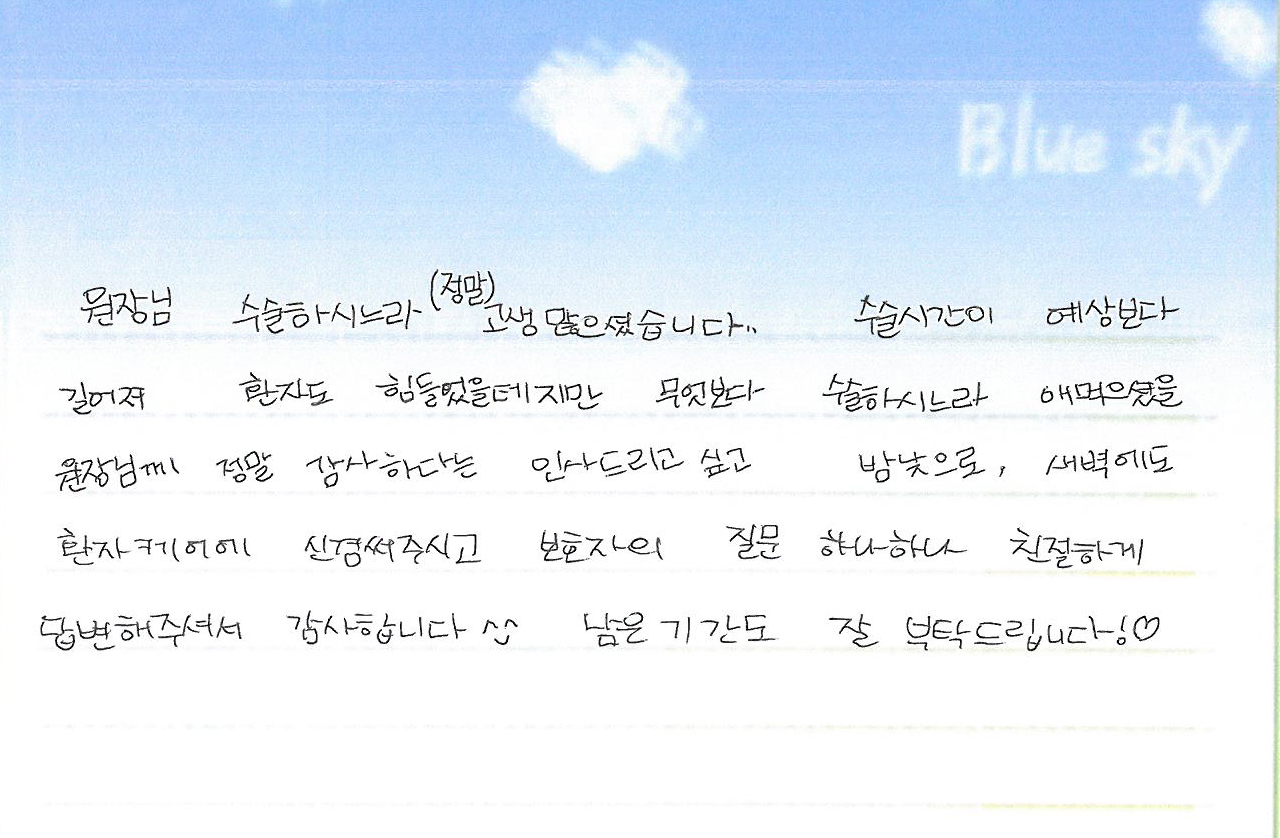 Blue sky
원장님 수술하시느라 (정말) 고생 많으셨습니다..  수술시간이 예상보다
길어져 환자도 힘들었을테지만 무엇보다 수술하시느라 애먹으셨을
원장님께 정말 감사하다는 인사드리고 싶고 밤낮으로, 새벽에도
환자케어에 신경써주시고 보호자의 질문 하나하나 친절하게
답변해주셔서 감사합니다 ^^ 남은 기간도 잘 부탁드립니다!♡